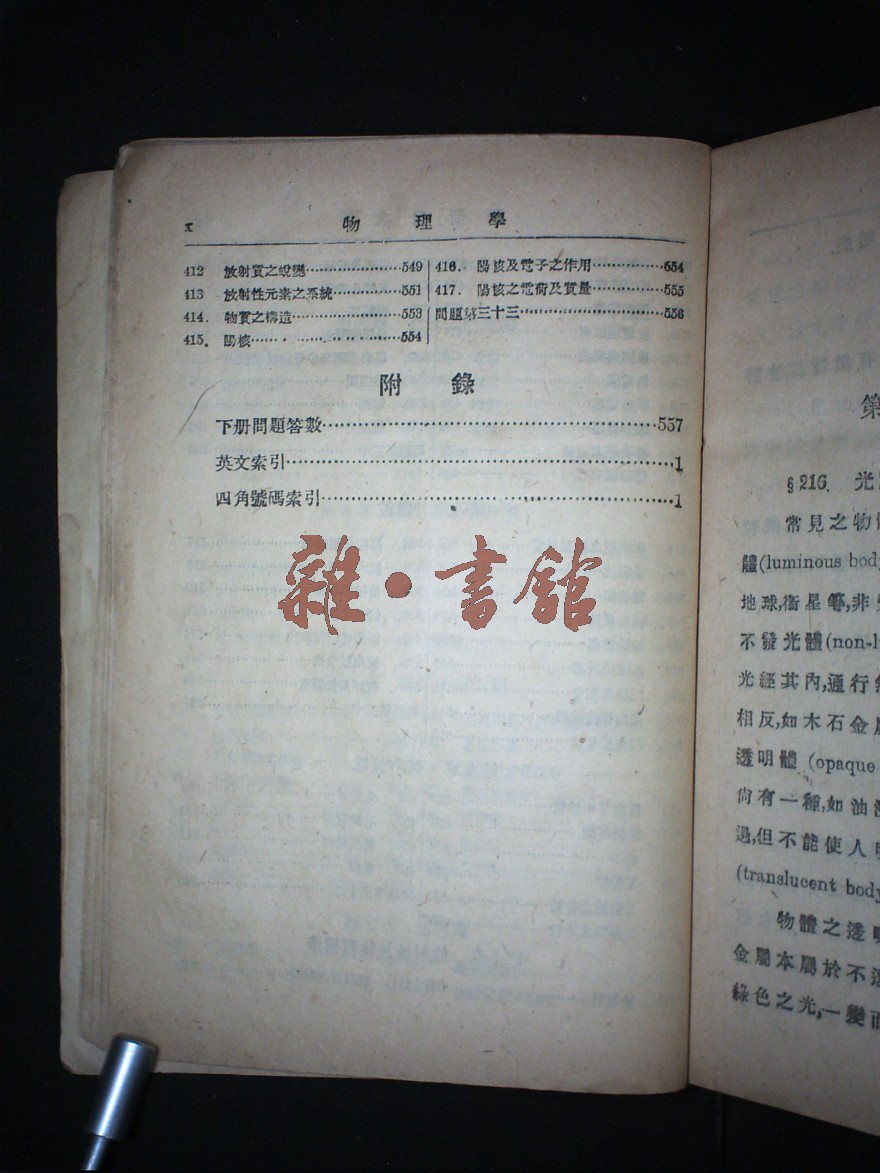 x 物理學
412 放射質之蛻變 549
413 放射性元素之系統 551
414. 物質之構造 553
415. 陽核 554
416. 陽核及電子之作用 554
417. 陽核之電荷及質量 555
問題第三十三 556
附錄
下册問題答數 557
英文索引 1
四角號碼索引 1
雜·書館
第
§216. 光
常見之物
體(luminous body
地球,衞星等,非
不發光體(non-l
光經其內,通行
相反,如木石金
透明體 (opaque
尙有一種,如油
過,但不能使人
(translucent body
物體之透
金屬本屬於不透
綠色之光,一變而